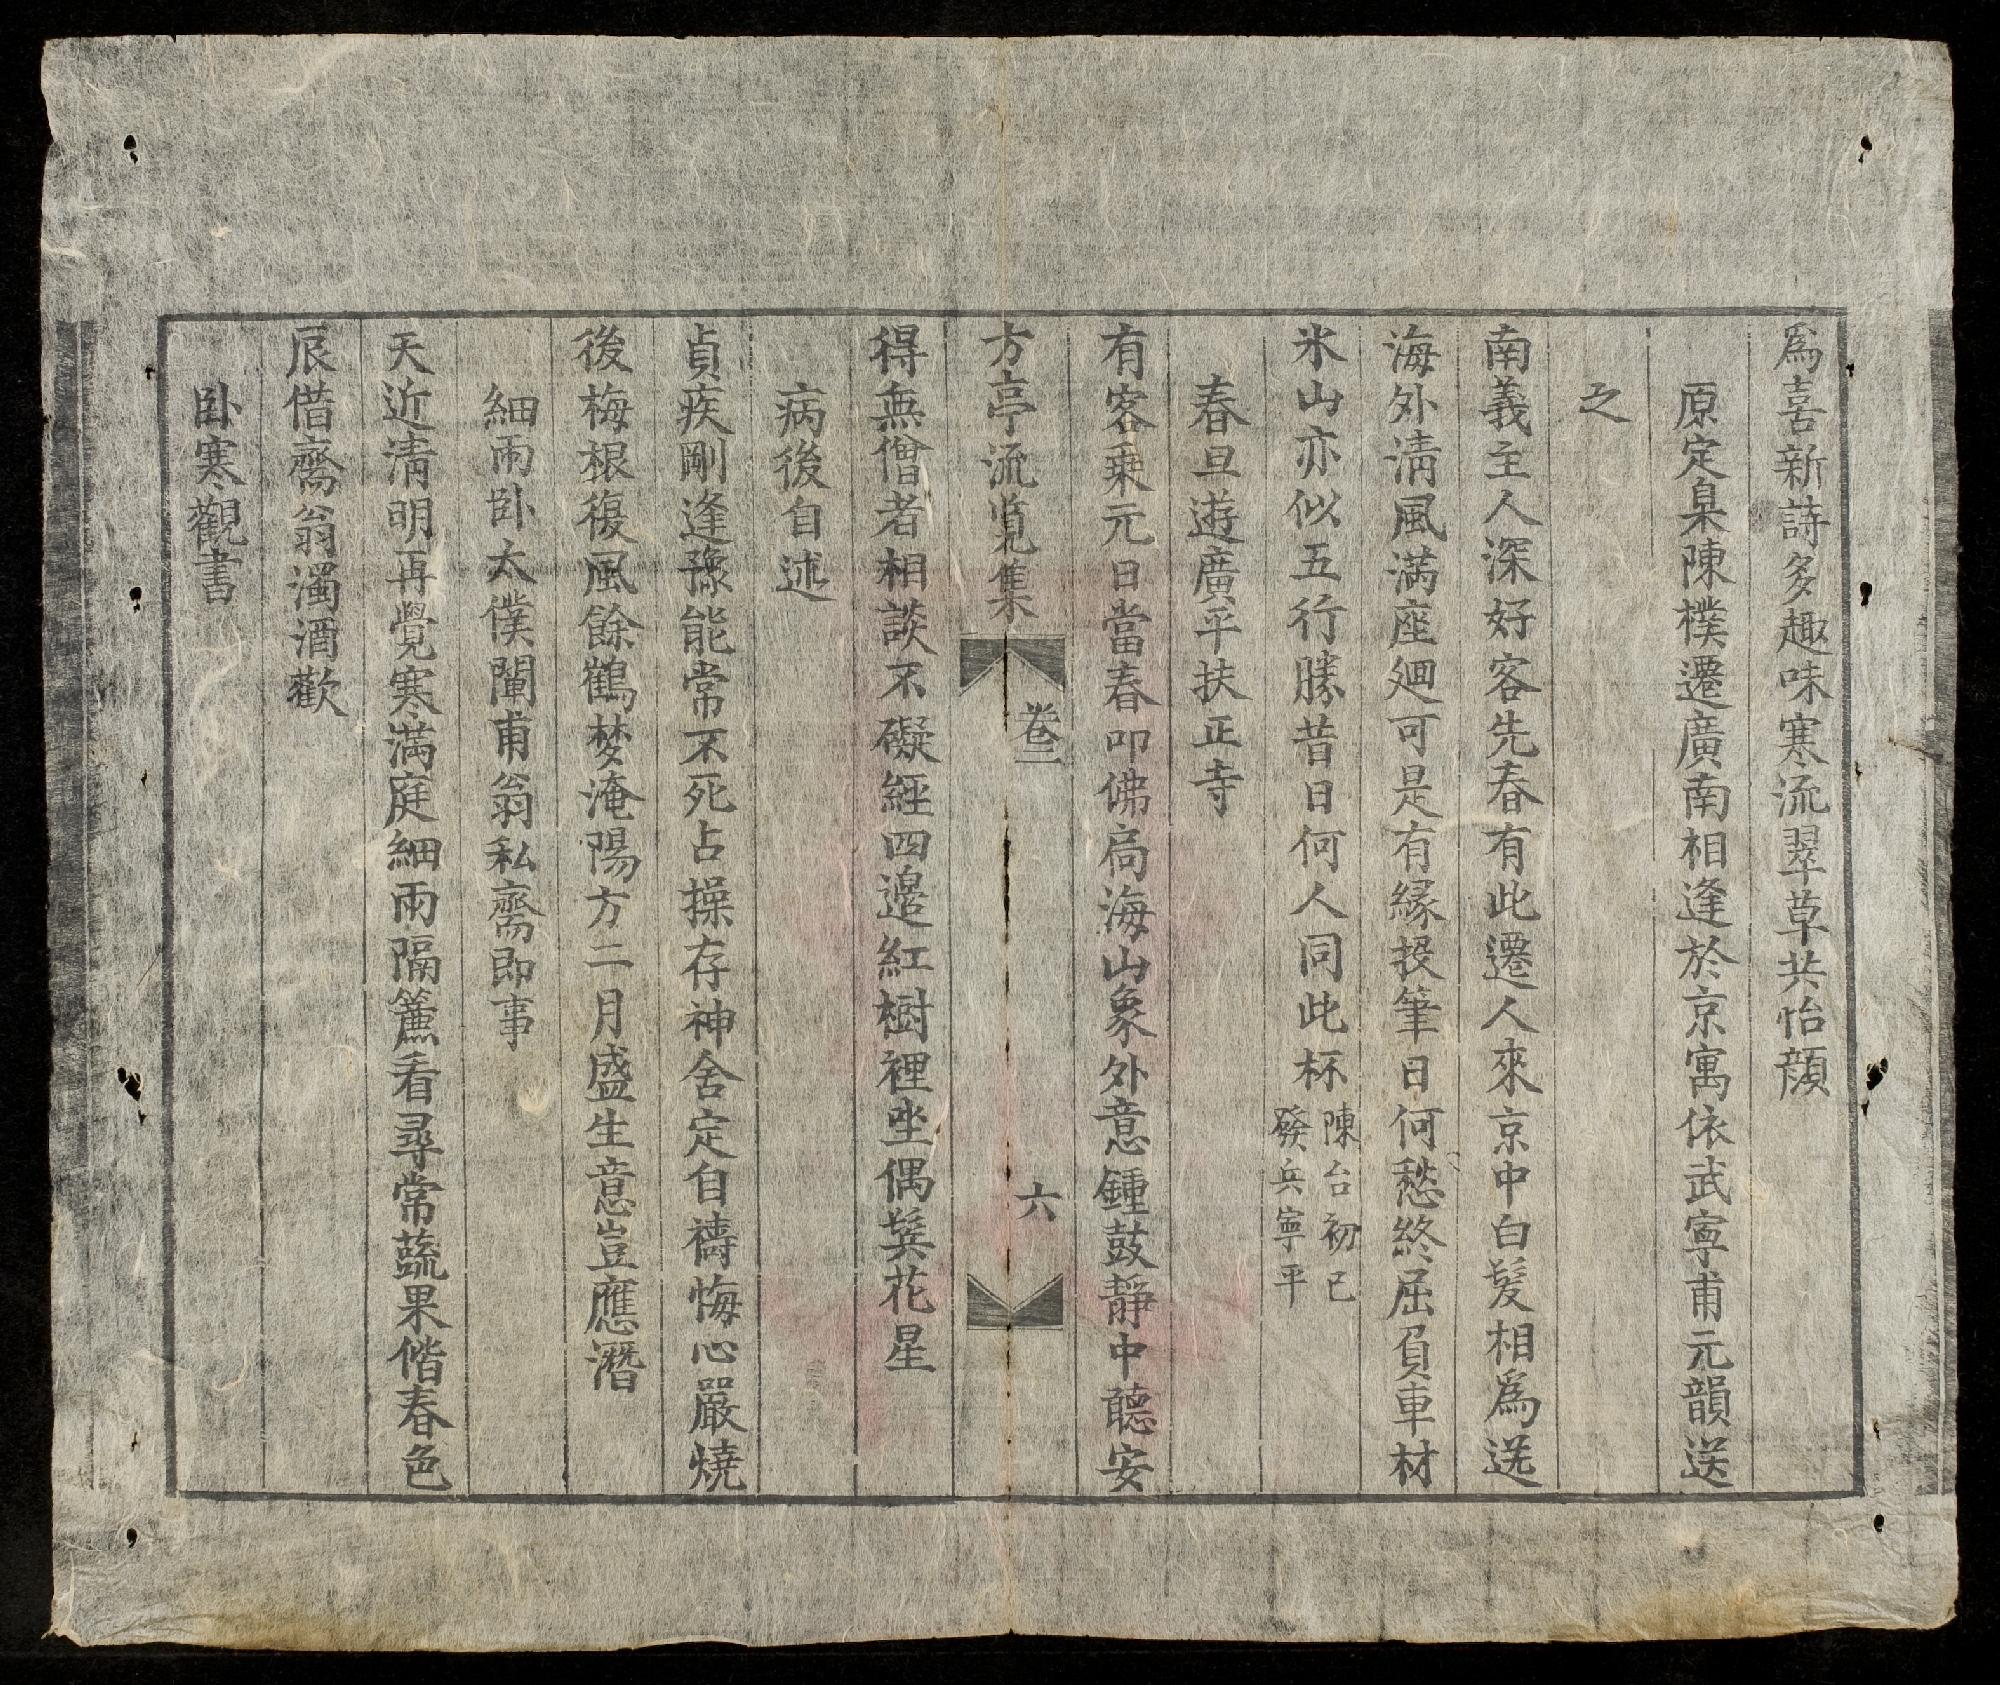 爲喜新詩多趣味寒流翠草共怡顔
原定臬陳樸遷廣南相逢於京寓依武寧甫元韻送
之
南義主人深好客先春有此遷人來京中白髮相爲送
海外清風滿座廻可是有緣投筆日何愁終屈負車材
氷山亦似五行勝昔日何人同此杯陳台初已發兵寧平
春旦遊廣平扶正寺
有客乘元日當春叩佛局海山象外意鍾鼓靜中聽安
方亭流覧集
卷二
六
得無僧者相談不礙經四邉紅樹裡坐偶鬂花星
病後自述
貞疾剛逢豫能常不死占操存神舍定自禱悔心嚴燒
後梅根復風餘鶴梦淹陽方二月盛生意豈應潛
細雨卧太僕闡甫翁私齋即事
天近清明再覺寒滿庭細雨隔簾看尋常蔬果偕春色
辰借齋翁濁酒歡
卧寒觀書